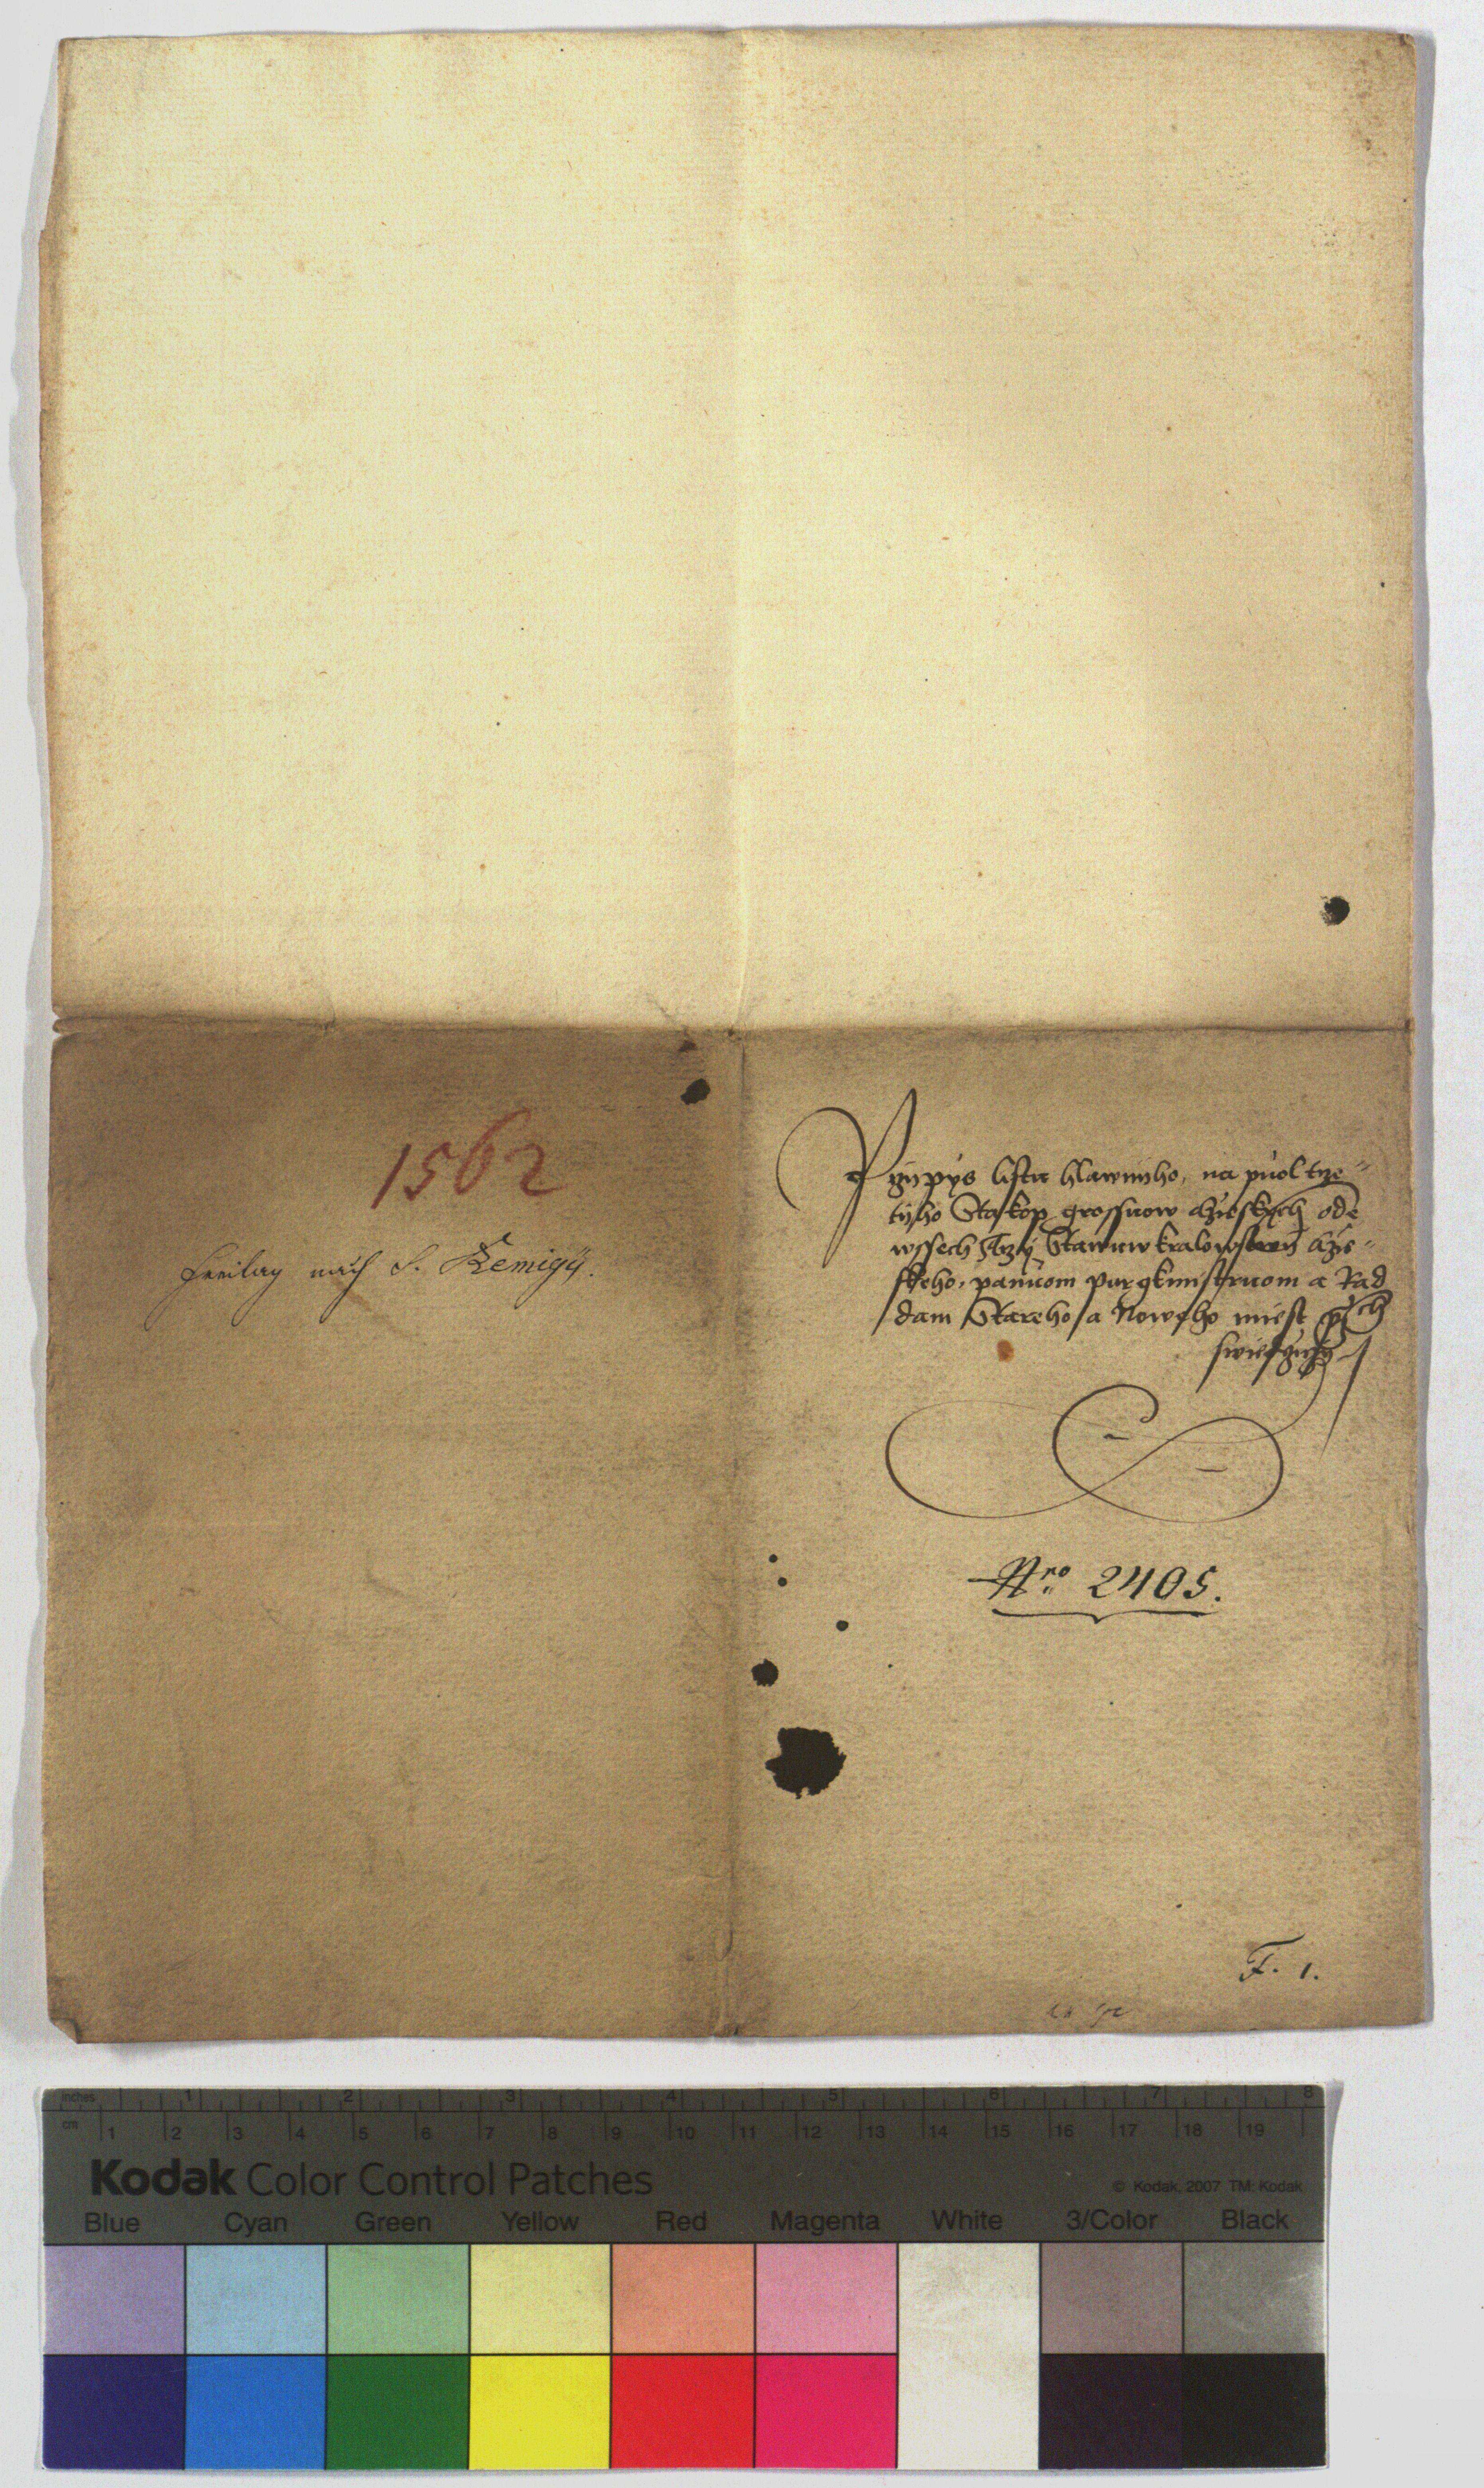 1562
Freitag nach S. Remigy.
Vypys listu hlawnyho, na puol trze=
tyho Sta kop grossuow czieskych ode
wssech Trzy Stawuw kralowstwy Czie=
skeho, panuom purgkmistruom a Rad
dam Stareho a Noweho miest
swiedczyczy
Nro 2405.
F. 1.
inches 1 2 3 4 5 6 7 8
cm 1 2 3 4 5 6 7 8 9 10 11 12 13 14 15 16 17 18 19
Kodak Color Control Patches
© Kodak, 2007 TM: Kodak
Blue Cyan Green Yellow Red Magenta White 3/Color Black